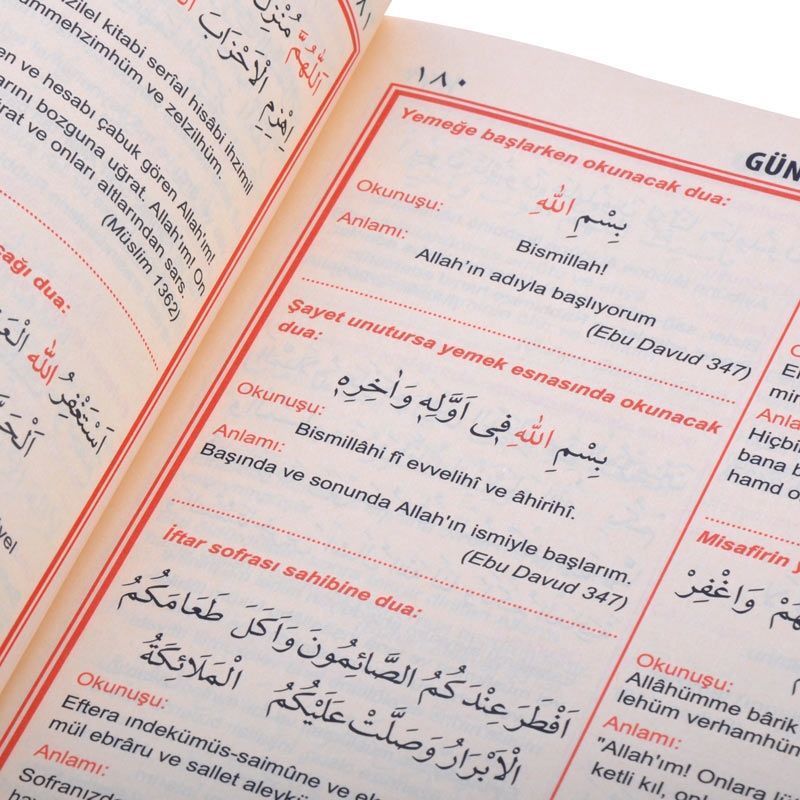 ١٨١
اَللّٰهُمَّ مُنْزِلَ
اِهْزِمِ الْاَحْزَابَ
zilel kitabi seriâl hisâbi ihzimil
ummehzimhüm ve zelzilhüm.
en ve hesabı çabuk gören Allah'ım!
arını bozguna uğrat. Allah'ım! On
ğrat ve onları altlarından sars.
(Müslim 1362)
cağı dua:
اَسْتَغْفِرُ اللّٰهَ
١٨٠
GÜN
Yemeğe başlarken okunacak dua:
بِسْمِ اللّٰهِ
Okunuşu:
Bismillah!
Anlamı:
Allah'ın adıyla başlıyorum
(Ebu Davud 347)
Şayet unutursa yemek esnasında okunacak
dua:
بِسْمِ اللّٰهِ فِى اَوَّلِهِ وَاٰخِرِهِ
Okunuşu:
Bismillâhi fî evvelihî ve âhirihî.
Anlamı:
Başında ve sonunda Allah'ın ismiyle başlarım.
(Ebu Davud 347)
İftar sofrası sahibine dua:
اَفْطَرَ عِنْدَكُمُ الصَّائِمُونَ وَاَكَلَ طَعَامَكُمُ
الْاَبْرَارُ وَصَلَّتْ عَلَيْكُمُ الْمَلَائِكَةُ
Okunuşu:
Eftera ındekümüs-saimûne ve e
mül ebrâru ve sallet aleykü
Anlamı:
Sofranızd
Anla
Hiçbi
bana b
hamd o
Misafirin y
هُمْ وَاغْفِرْ
Okunuşu:
Allâhümme bârik
lehüm verhamhün
Anlamı:
"Allah'ım! Onlara
ketli kıl, on